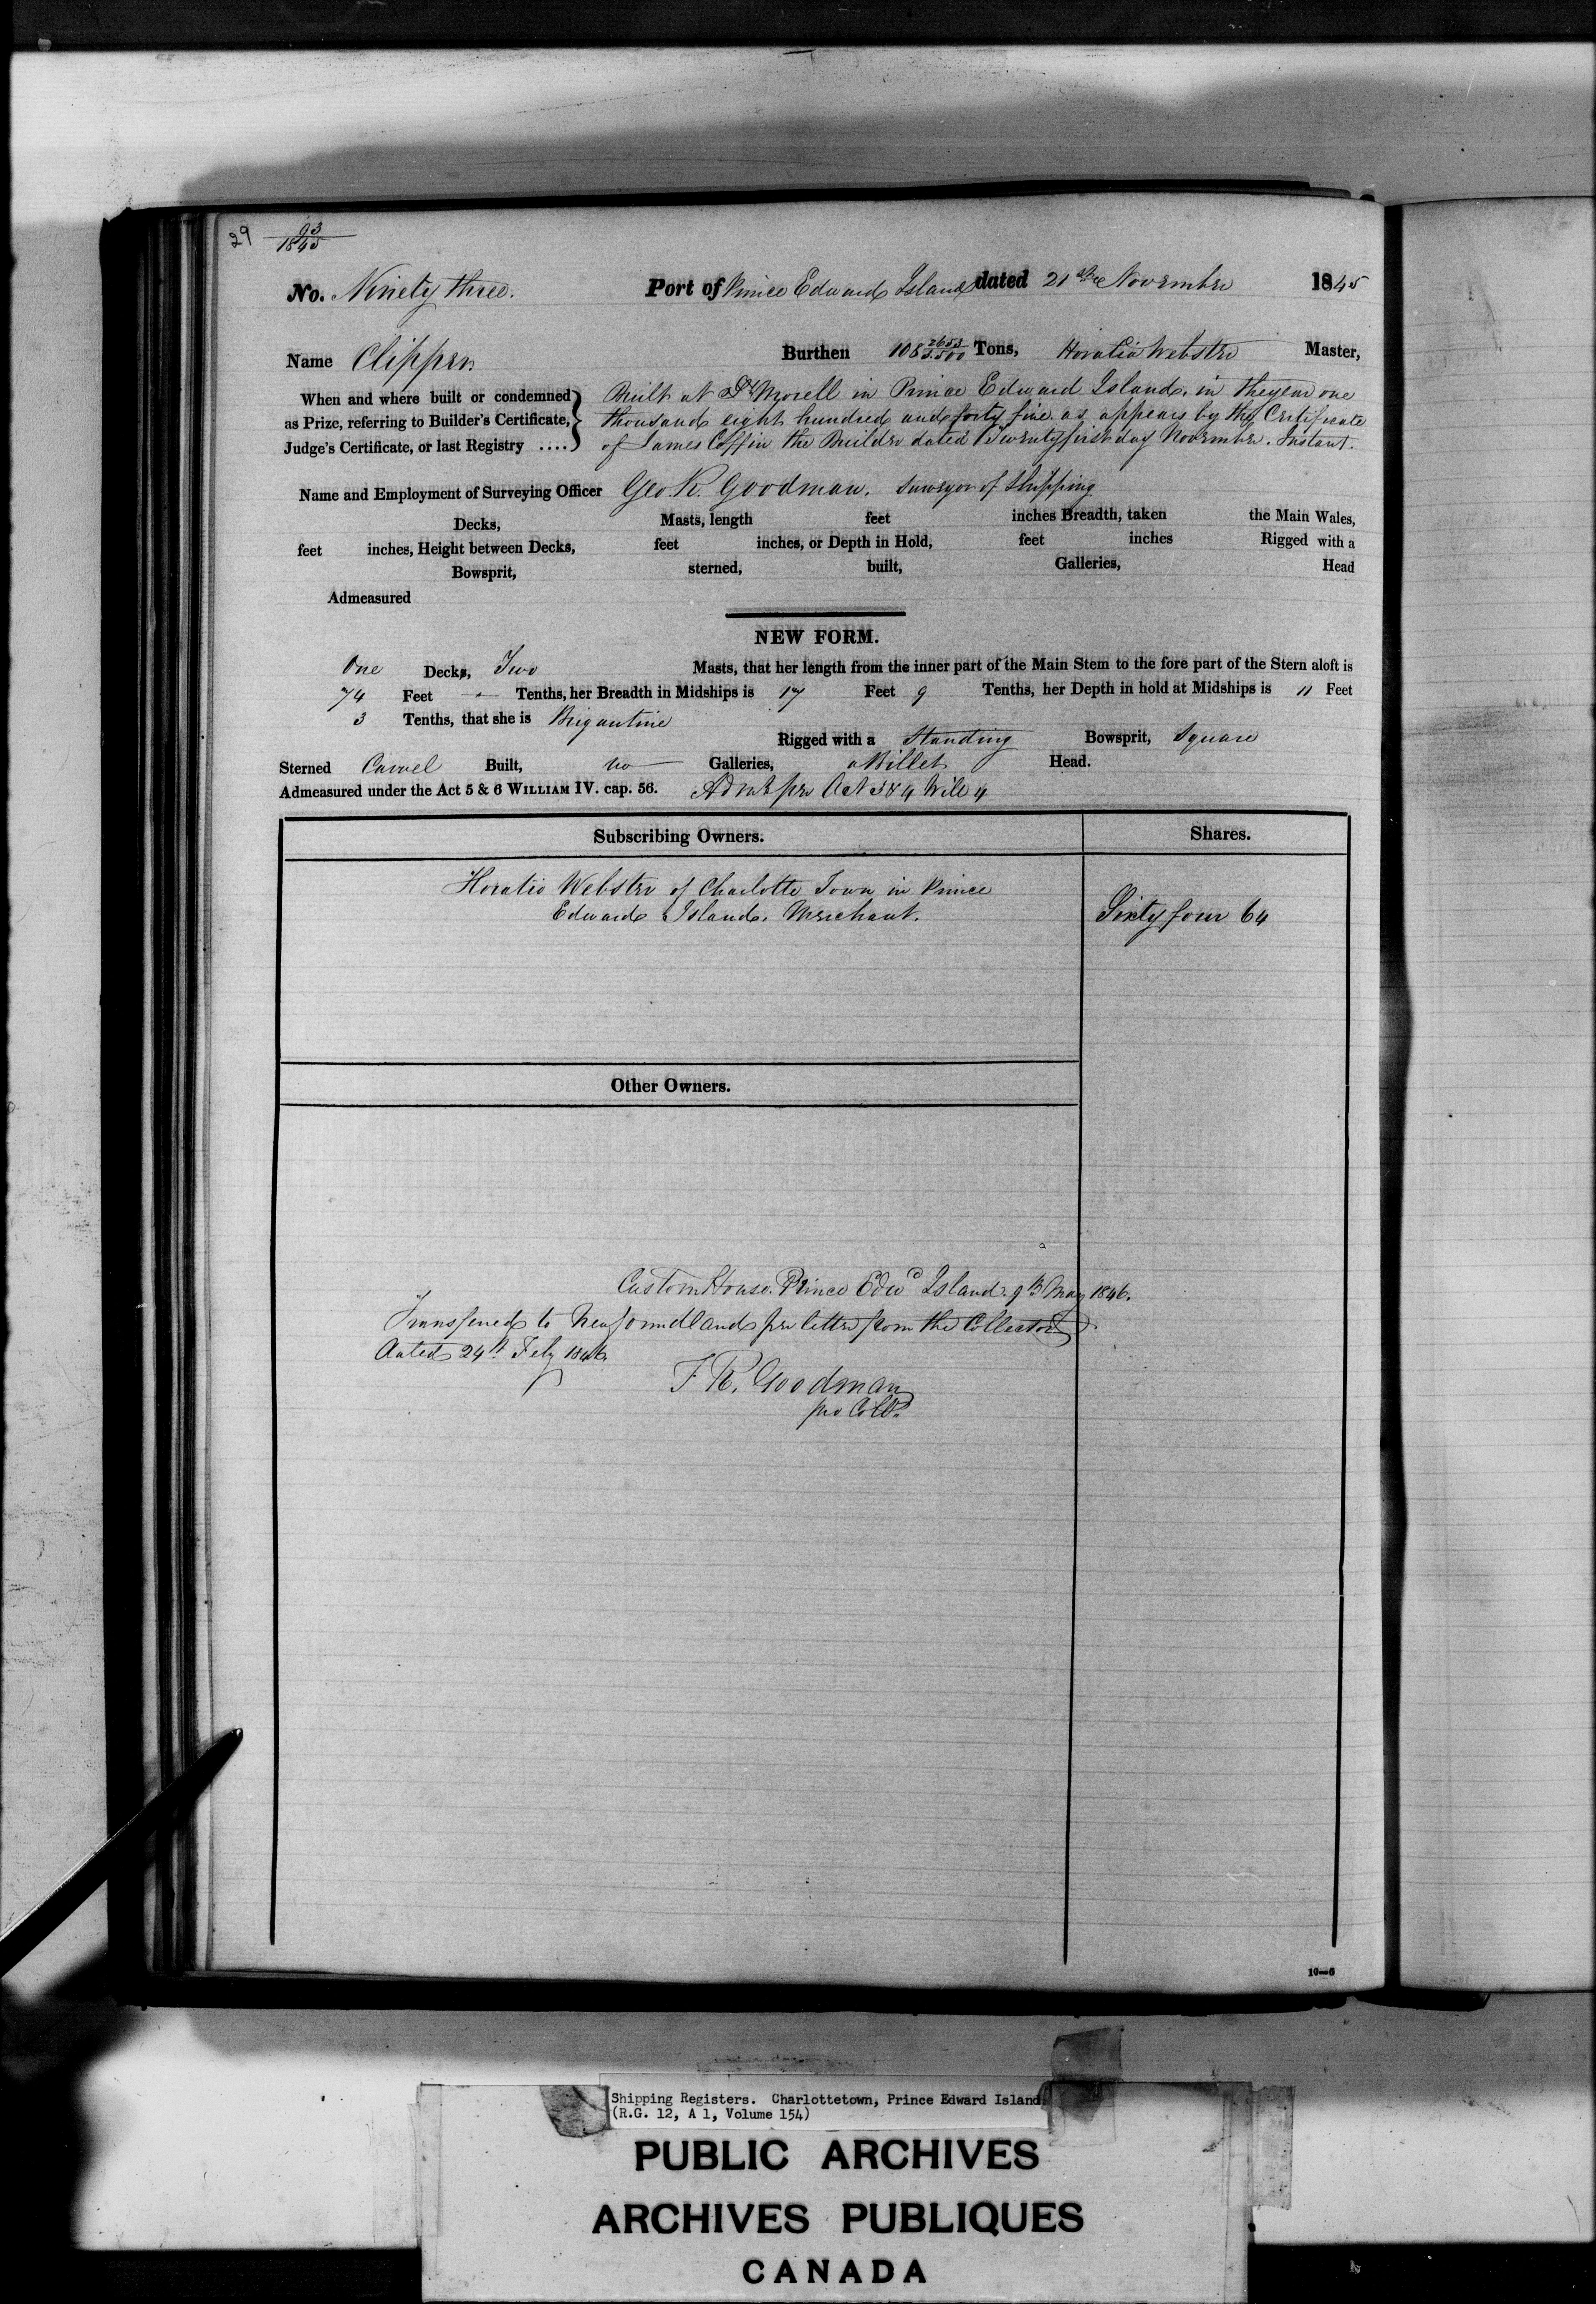 29 93
1845
No. Ninety three. Port of Prince Edward Island dated 21st November 1845
Name Clipper Burthen 108 2653/3500 Tons, Horatio Webster Master,
When and where built or condemned Built at St Morell in Prince Edward Island, in the year one
as Prize, referring to Builder's Certificate, thousand eight hundred and forty five as appears by the Certificate
Judge's Certificate, or last Registry .... of James Coffin the Builder dated Twenty first day November. Instant.
Name and Employment of Surveying Officer Geo. R. Goodman. Surveyor of Shipping
Decks, Masts, length feet inches Breadth, taken the Main Wales,
feet inches, Height between Decks, feet inches, or Depth in Hold, feet inches Rigged with a
Bowsprit, sterned, built, Galleries, Head
Admeasured
NEW FORM.
One Decks, Two Masts, that her length from the inner part of the Main Stem to the fore part of the Stern aloft is
74 Feet - Tenths, her Breadth in Midships is 17 Feet 9 Tenths, her Depth in hold at Midships is 11 Feet
3 Tenths, that she is Brigantine
Rigged with a Standing Bowsprit, Square
Sterned Carvel Built, no Galleries, a Billet Head.
Admeasured under the Act 5 & 6 WILLIAM IV. cap. 56. per Act 3 & 4 Will 4
Subscribing Owners. Shares.
Horatio Webster of Charlotte Town in Prince
Edward Island, Merchant. Sixty four 64
Other Owners.
Custom House. Prince Edwd Island. 9th May 1846.
Transfered to Newfoundland per letter from the Collector
dated 24th Feby 1846.
F R. Goodman
pro Collr
10—6
Shipping Registers. Charlottetown, Prince Edward Island.
(R.G. 12, A 1, Volume 154)
PUBLIC ARCHIVES
ARCHIVES PUBLIQUES
CANADA